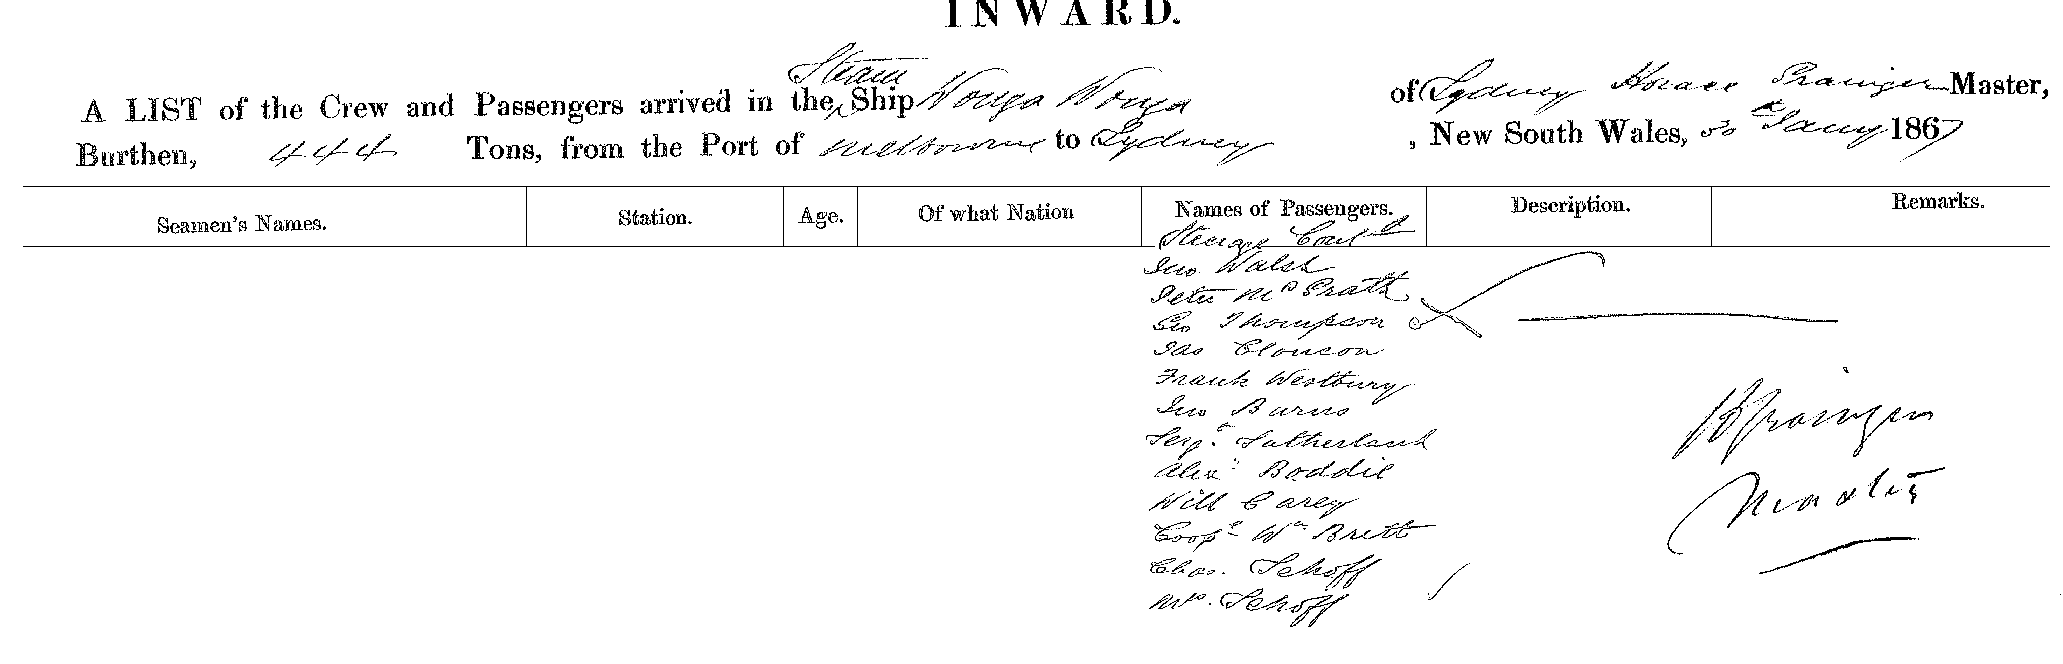 INWARD.
A LIST of the Crew and Passengers arrived in the Steam Ship Wonga Wonga of Sydney Horace Master,
Burthen, 444 Tons, from the Port of Melbourne to Sydney, New South Wales, 30th Jany 1867
Seamen's Names. Station. Age. Of what Nation Names of Passengers. Description. Remarks.
Steerage Contd
Jno Walsh
Peter McGrath
Geo Thompson
Jas
Frank Westbury
Jno Burns
Sergt. Sutherland
Alexr Boddie
Will Carey
Wm Brett
Chas. Schoff
Mrs. Schoff
Master